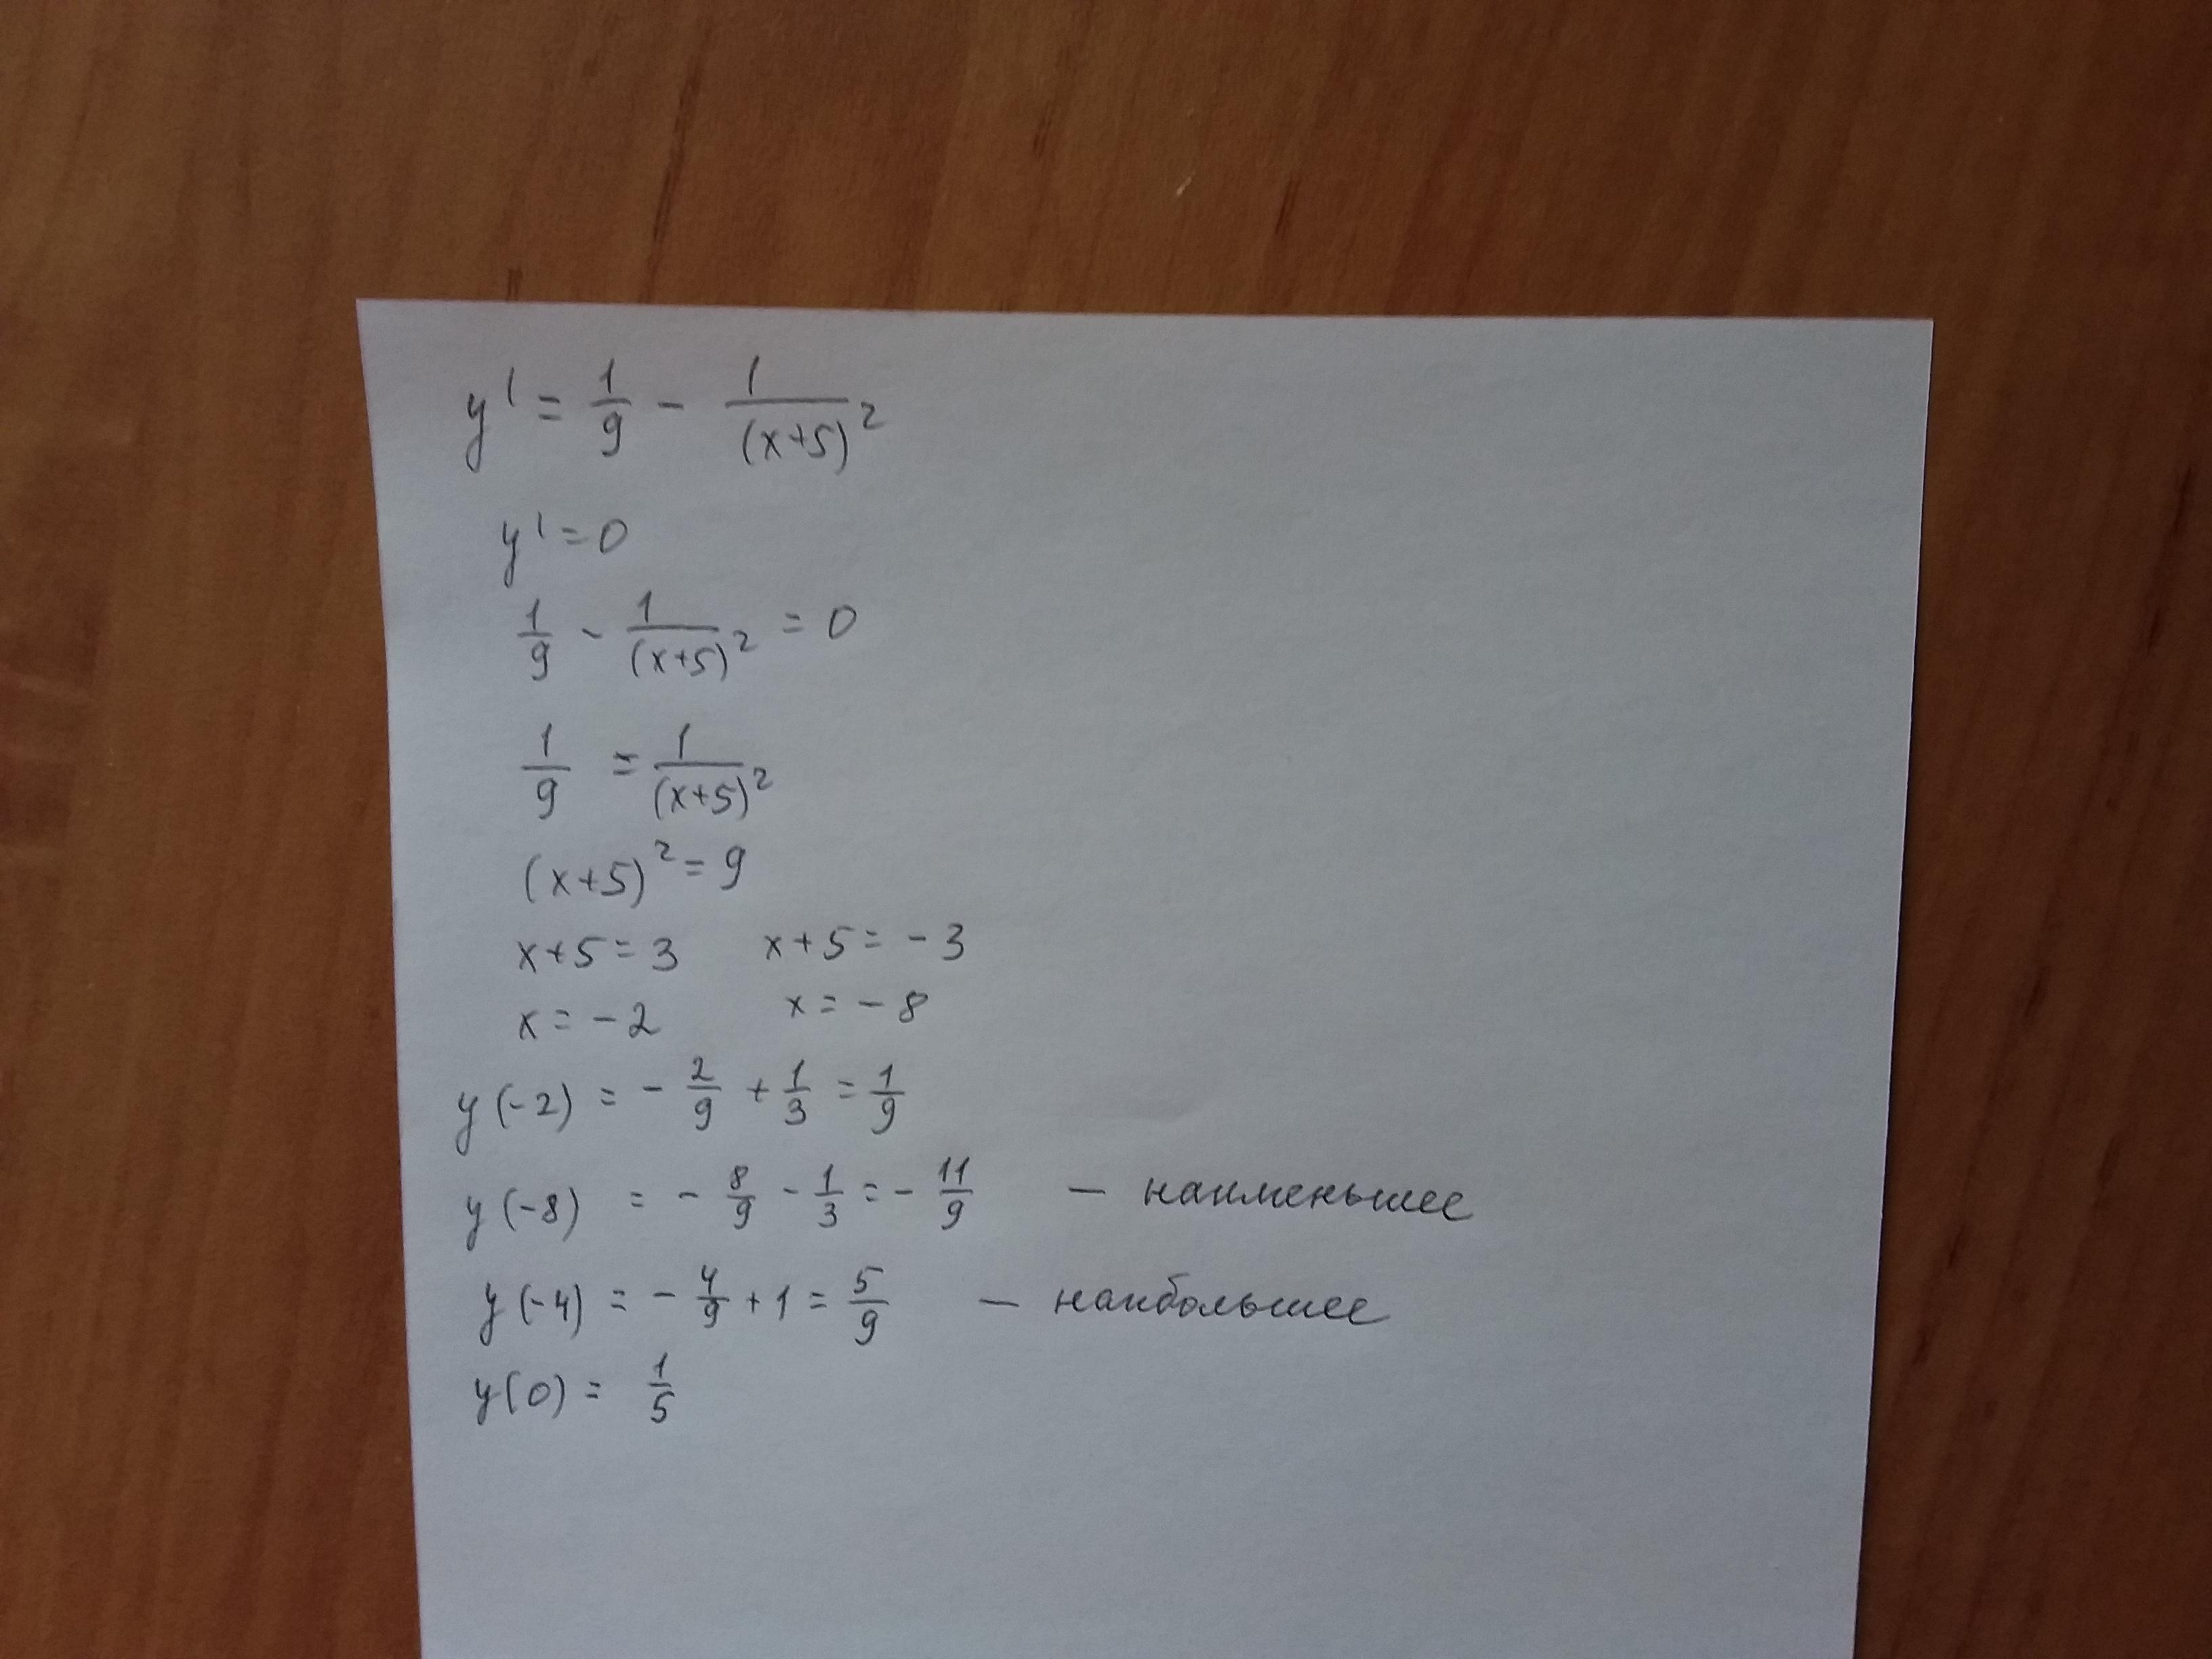 y' = 1/9 - 1/(x+5)²
y' = 0
1/9 - 1/(x+5)² = 0
1/9 = 1/(x+5)²
(x+5)² = 9
x+5 = 3 x+5 = -3
x = -2 x = -8
y(-2) = -2/9 + 1/3 = 1/9
y(-8) = -8/9 - 1/3 = -11/9 — наименьшее
y(-4) = -4/9 + 1 = 5/9 — наибольшее
y(0) = 1/5